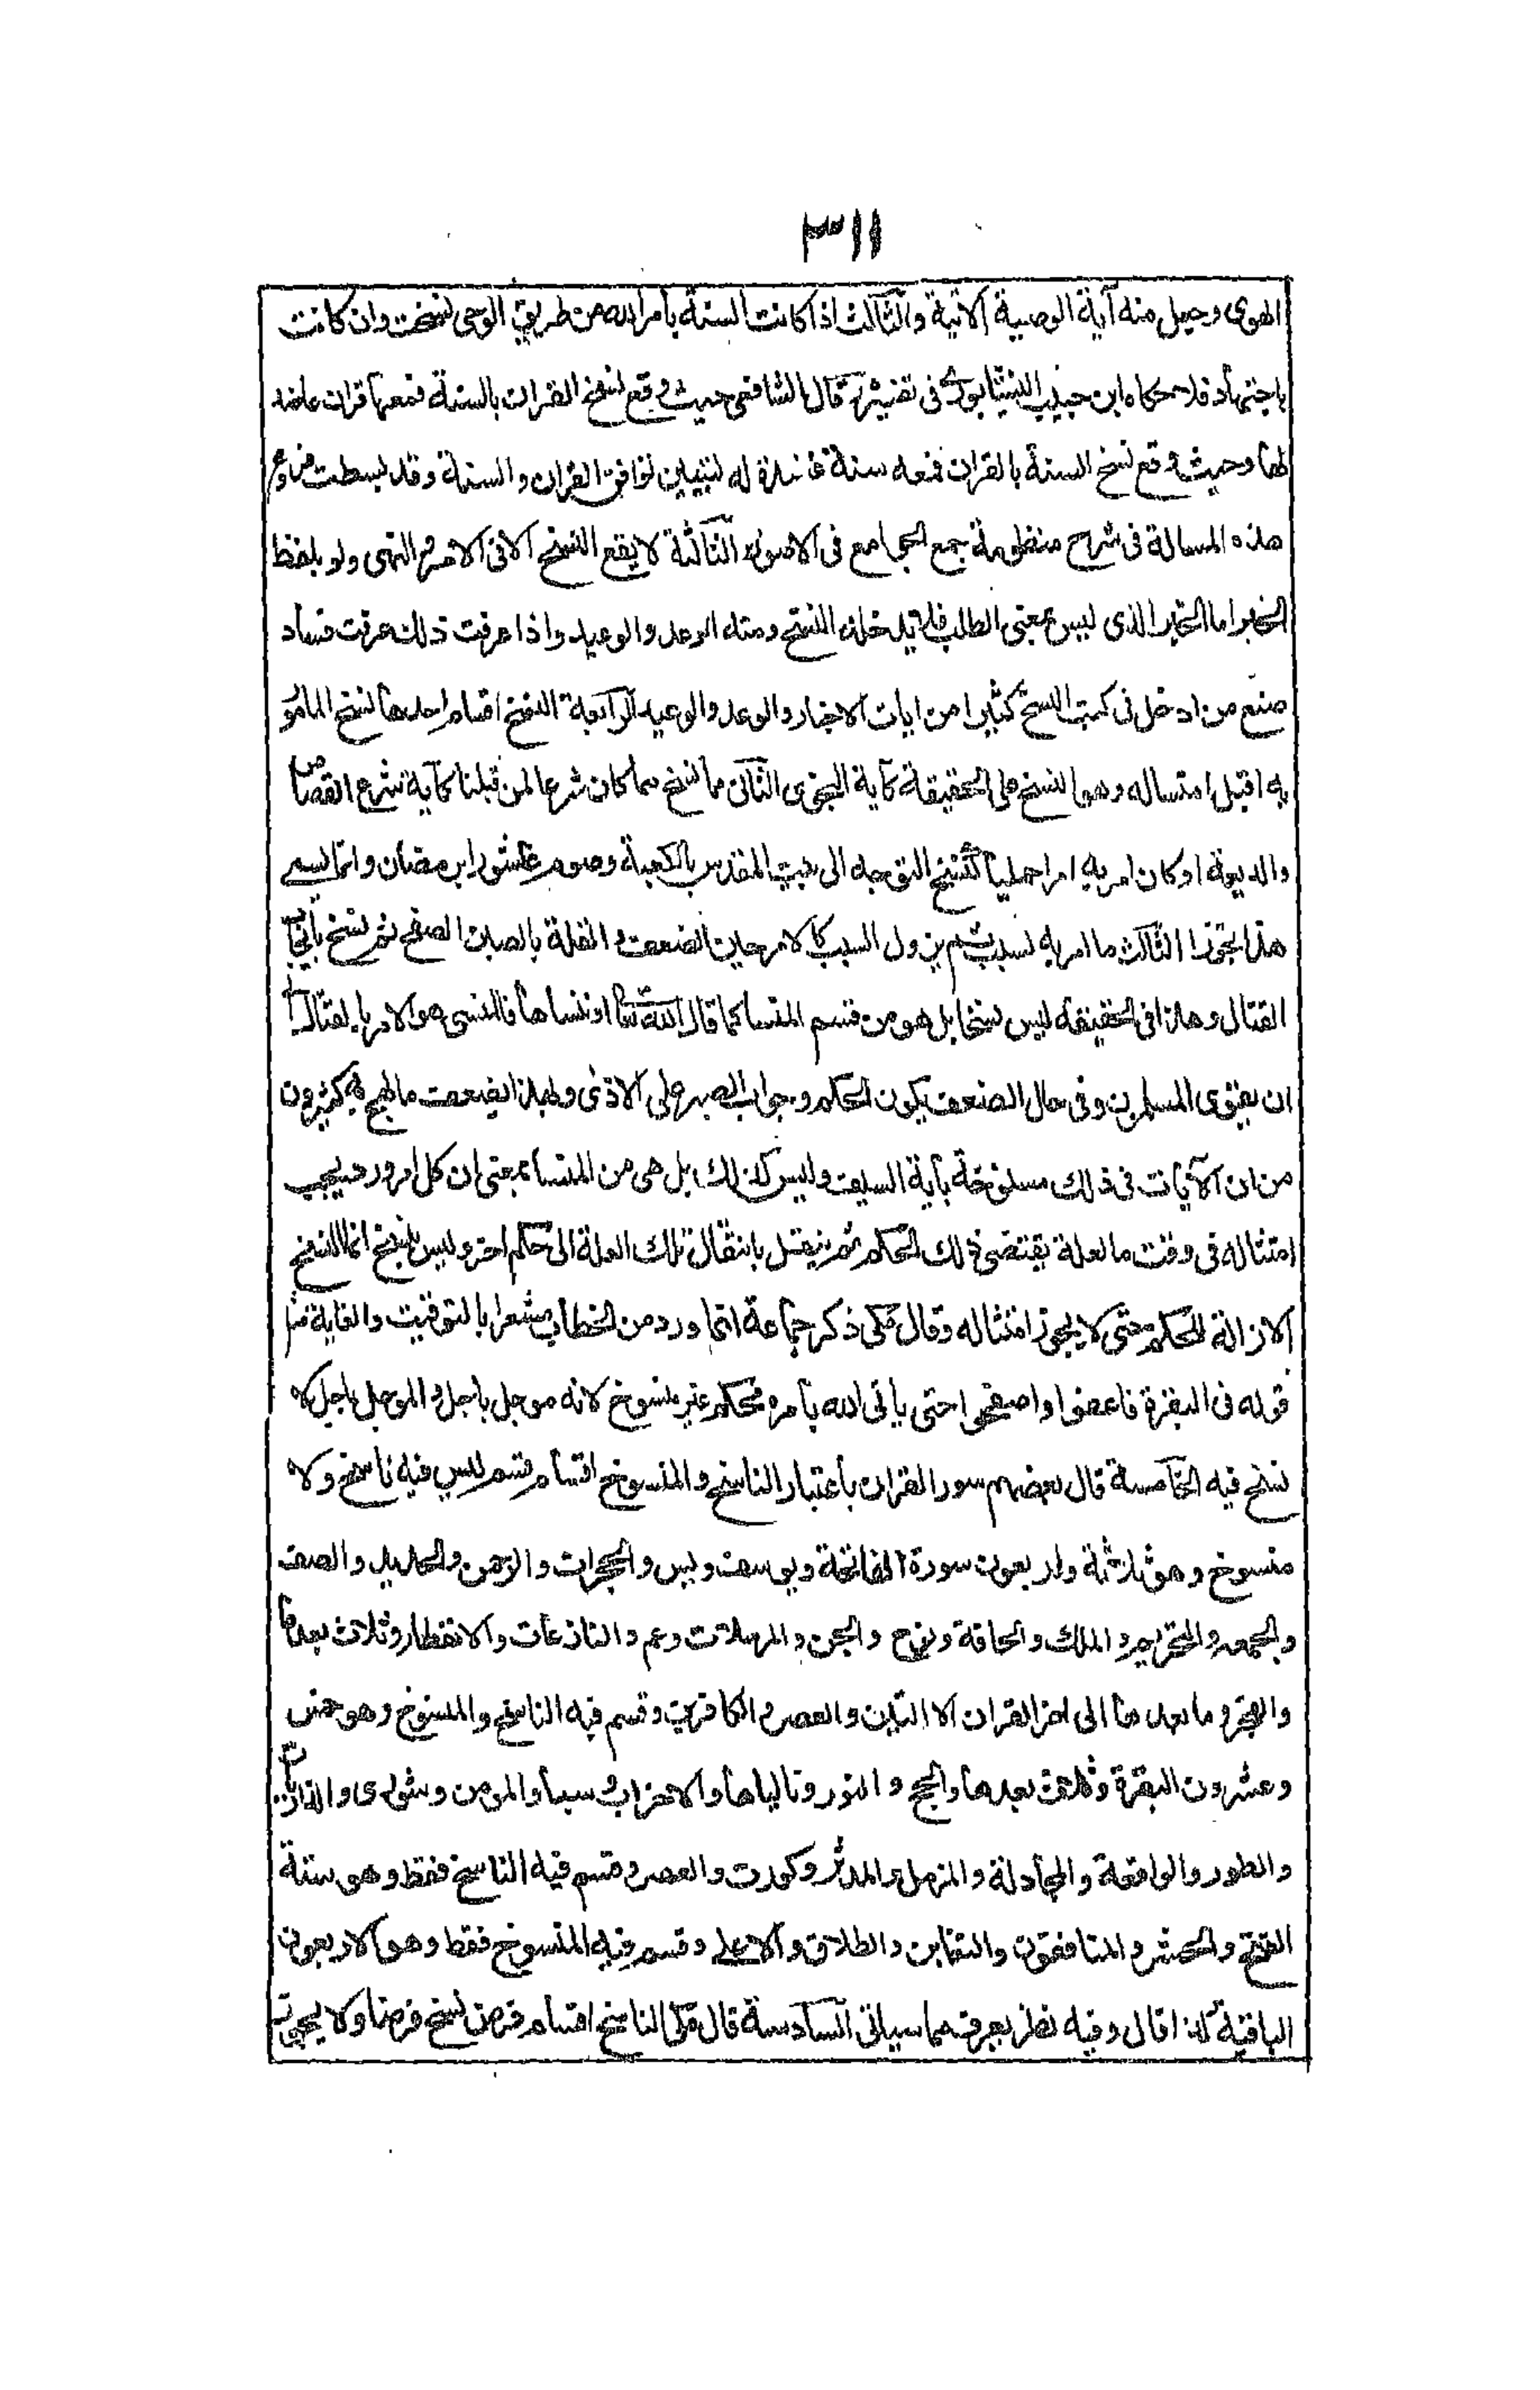 ٣١١
الهوى وجعل منه آية الوصية الآتية والثالث اذا كانت السنة بأمر الله من طريق الوحى نسخت وان كانت
باجتهاد فلا حكاه ابن حبيب النيشابورى فى تفسيره قال الشافعى حيث وقع نسخ القران بالسنة فمعها قران عاضد
لها وحيث وقع نسخ السنة بالقران فمعه سنة عاضدة له لتبيين توافق القران والسنة وقد بسطت فروع
هذه المسالة فى شرح منظومة جمع الجوامع فى الاصول الثالثة لا يقع النسخ الا فى الامر والنهى ولو بلفظ
الخبر اما الخبر الذى ليس بمعنى الطلب فلا يدخله النسخ ومنه الوعد والوعيد واذا عرفت ذلك عرفت فساد
صنع من ادخل فى كتب النسخ كثيرا من ايات الاخبار والوعد والوعيد الرابعة النسخ اقسام احدها نسخ المامور
به قبل امتثاله وهو النسخ على الحقيقة كآية النجوى الثانى ما نسخ مما كان شرعا لمن قبلنا كآية شرع القصاص
والدية او كان امر به امرا جمليا كنسخ التوجه الى بيت المقدس بالكعبة وصوم عاشورا برمضان وانما يسمى
هذا تجوزا الثالث ما امر به لسبب ثم يزول السبب كالامر حين الضعف والقلة بالصبر والصفح ثم نسخ بايجاب
القتال وهذا فى الحقيقة ليس نسخا بل هو من قسم المنسا كما قال الله تعا او ننساها فالمنسى هو الامر بالقتال الى
ان يقوى المسلمون وفى حال الضعف يكون الحكم وجواب الصبر على الاذى ولهذا يضعف ما لهج به كثيرون
من ان الآيات فى ذلك منسوخة بآية السيف وليس كذلك بل هى من المنسا بمعنى ان كل امر ورد يجب
امتثاله فى وقت ما لعلة يقتضى ذلك الحكم ثم ينتقل بانتقال تلك العلة الى حكم اخر وليس بنسخ انما النسخ
الازالة للحكم حتى لا يجوز امتثاله وقال مكى ذكر جماعة انما ورد من الخطاب مشعرا بالتوقيت والغاية مثل
قوله فى البقرة فاعفوا واصفحوا حتى ياتى الله بامره محكم غير منسوخ لانه موجل باجل والموجل باجل لا
نسخ فيه الخامسة قال بعضهم سور القران باعتبار الناسخ والمنسوخ اقسام قسم ليس فيه ناسخ ولا
منسوخ وهو ثلاثة واربعون سورة الفاتحة ويوسف ويس والحجرات والرحمن والحديد والصف
والجمعه والتحريم والملك والحاقة ونوح والجن والمرسلات وعم والنازعات والانفطار وثلاث بعدها
والفجر وما بعدها الى اخر القران الا التين والعصر والكافرين وقسم فيه الناسخ والمنسوخ وهو خمس
وعشرون البقرة وثلاث بعدها والحج والنور وتالياها والاحزاب وسبا والمومن وشورى والذاريات
والطور والواقعة والمجادلة والمزمل والمدثر وكورت والعصر وقسم فيه الناسخ فقط وهو ستة
الفتح والحشر والمنافقون والتغابن والطلاق والاعلى وقسم فيه المنسوخ فقط وهو الاربعون
الباقية كذا قال وفيه نظر يعرف مما سياتى السادسة قال مكى الناسخ اقسام فرض نسخ فرضا ولا يجوز